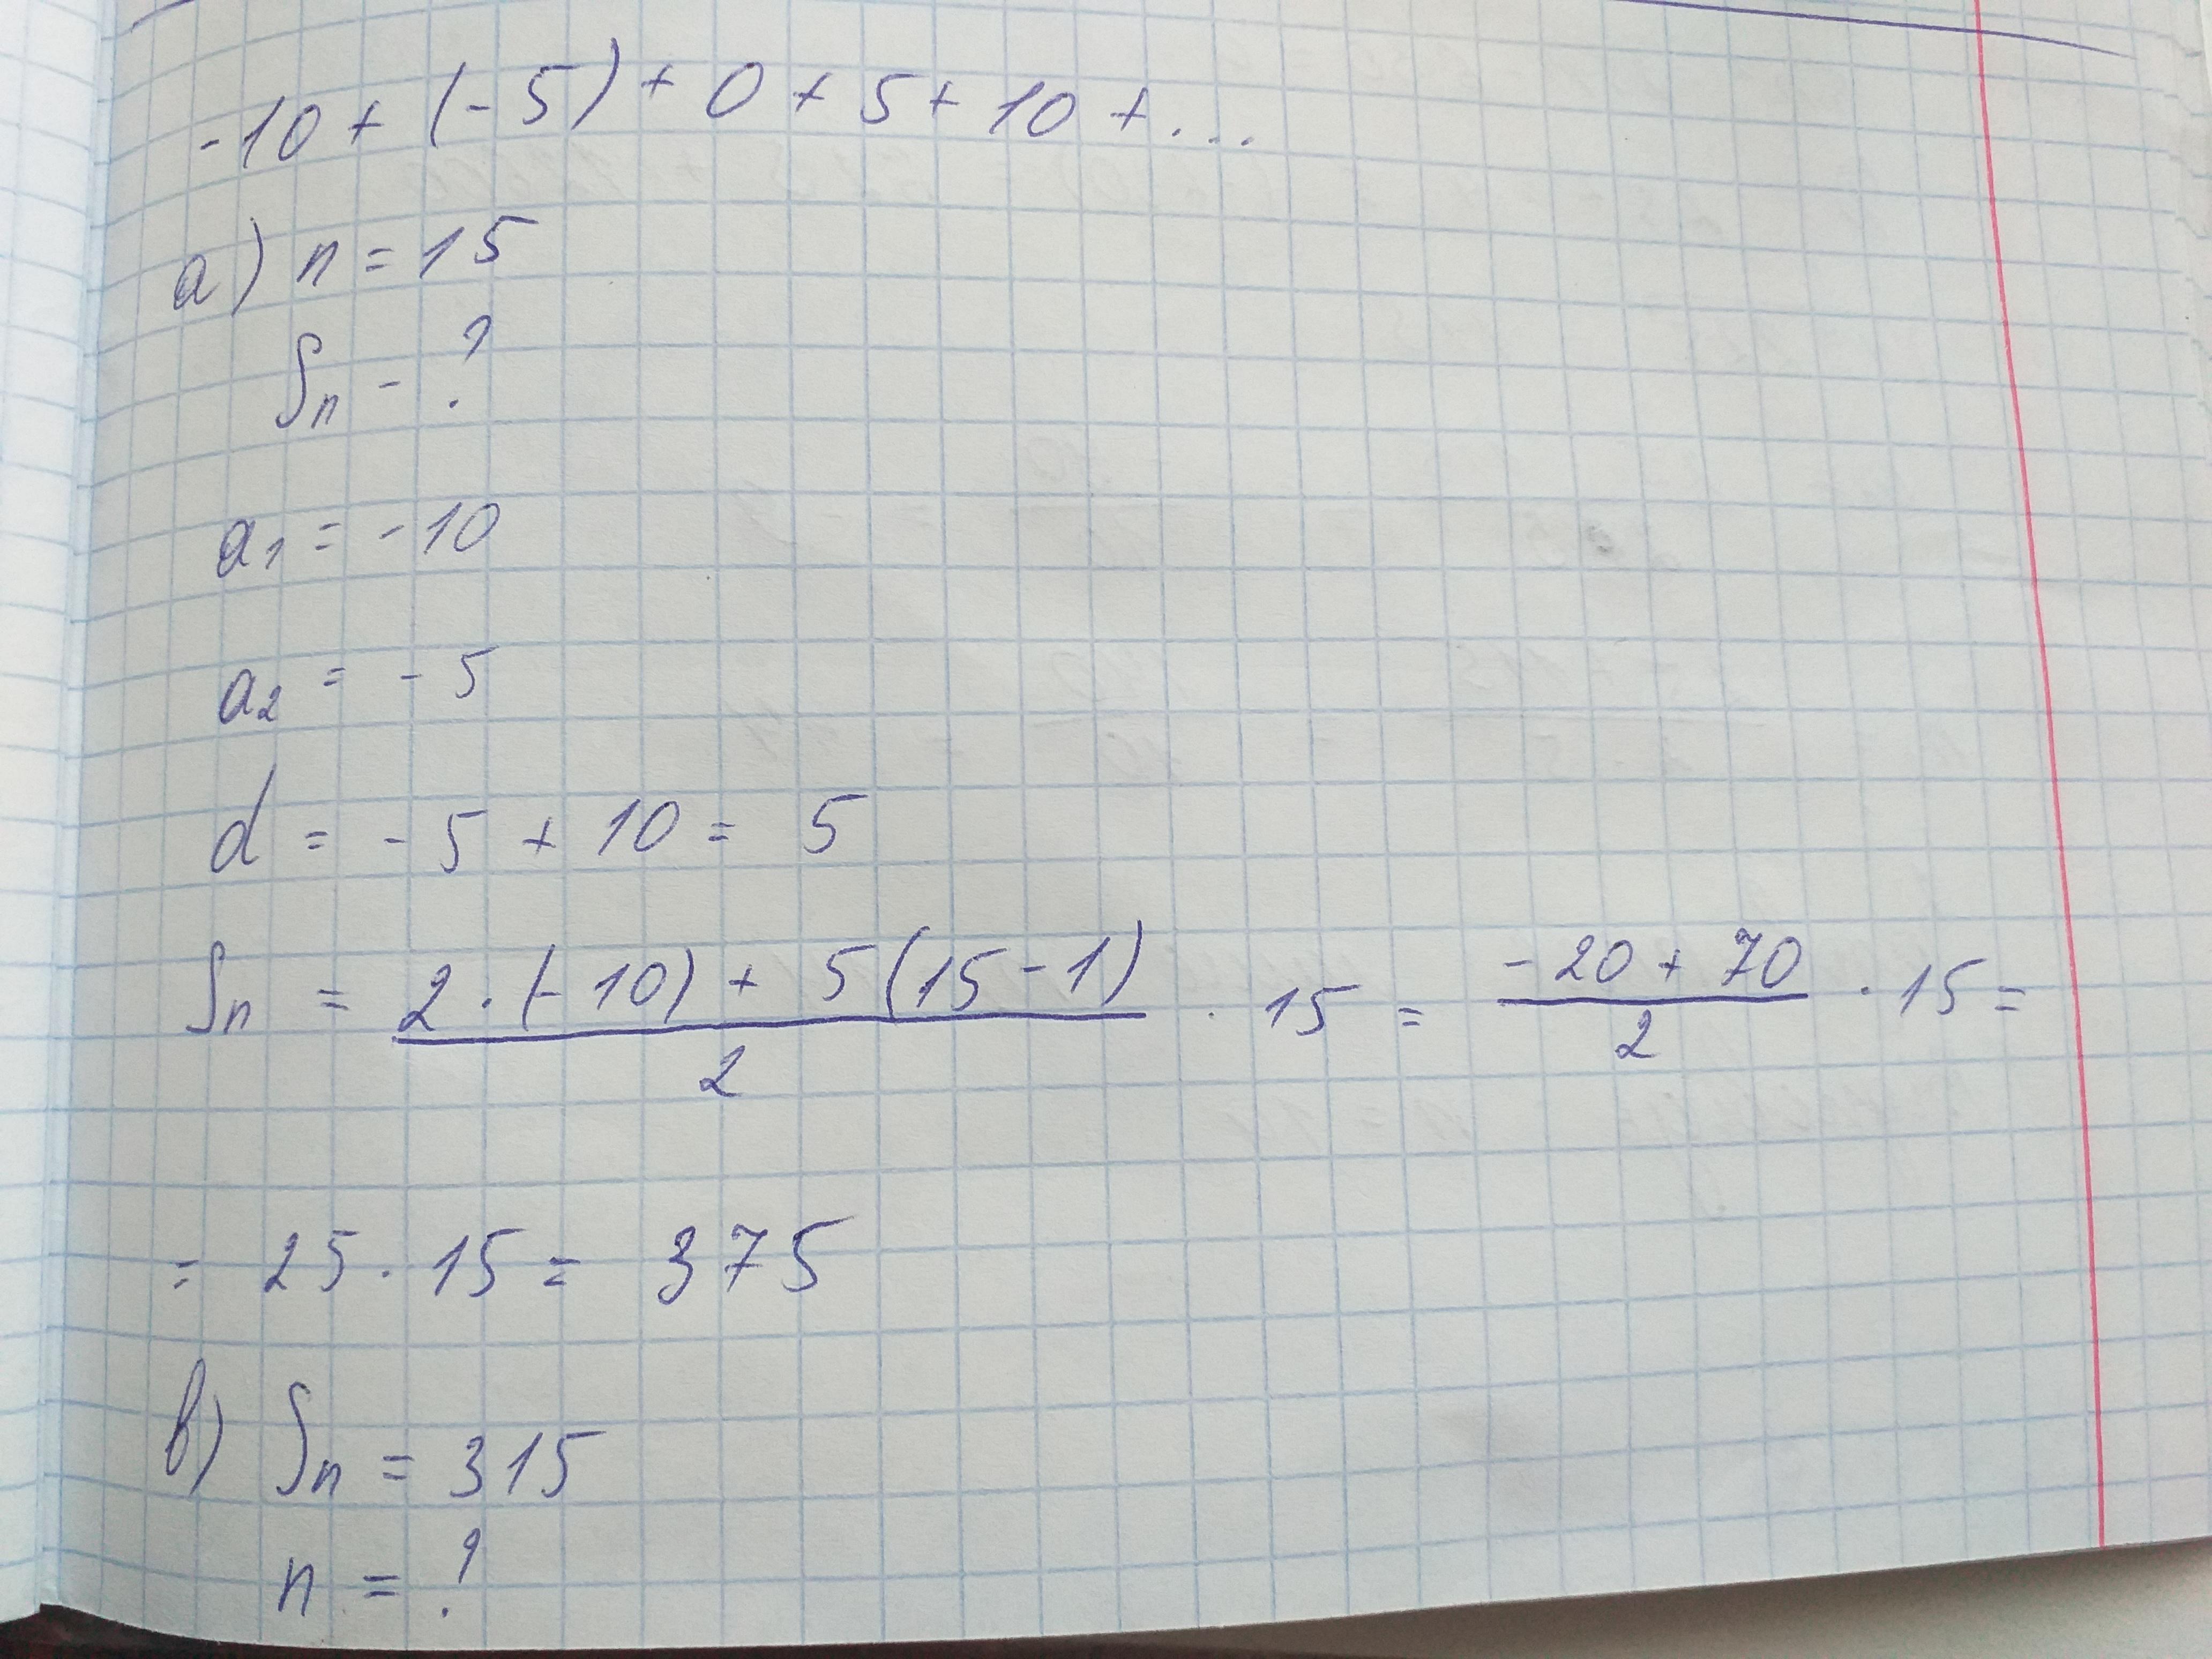 -10 + (-5) + 0 + 5 + 10 + ...
а) n = 15
Sn - ?
a1 = -10
a2 = -5
d = -5 + 10 = 5
Sn = (2 · (-10) + 5(15 - 1))/2 · 15 = (-20 + 70)/2 · 15 =
= 25 · 15 = 375
в) Sn = 315
n = ?